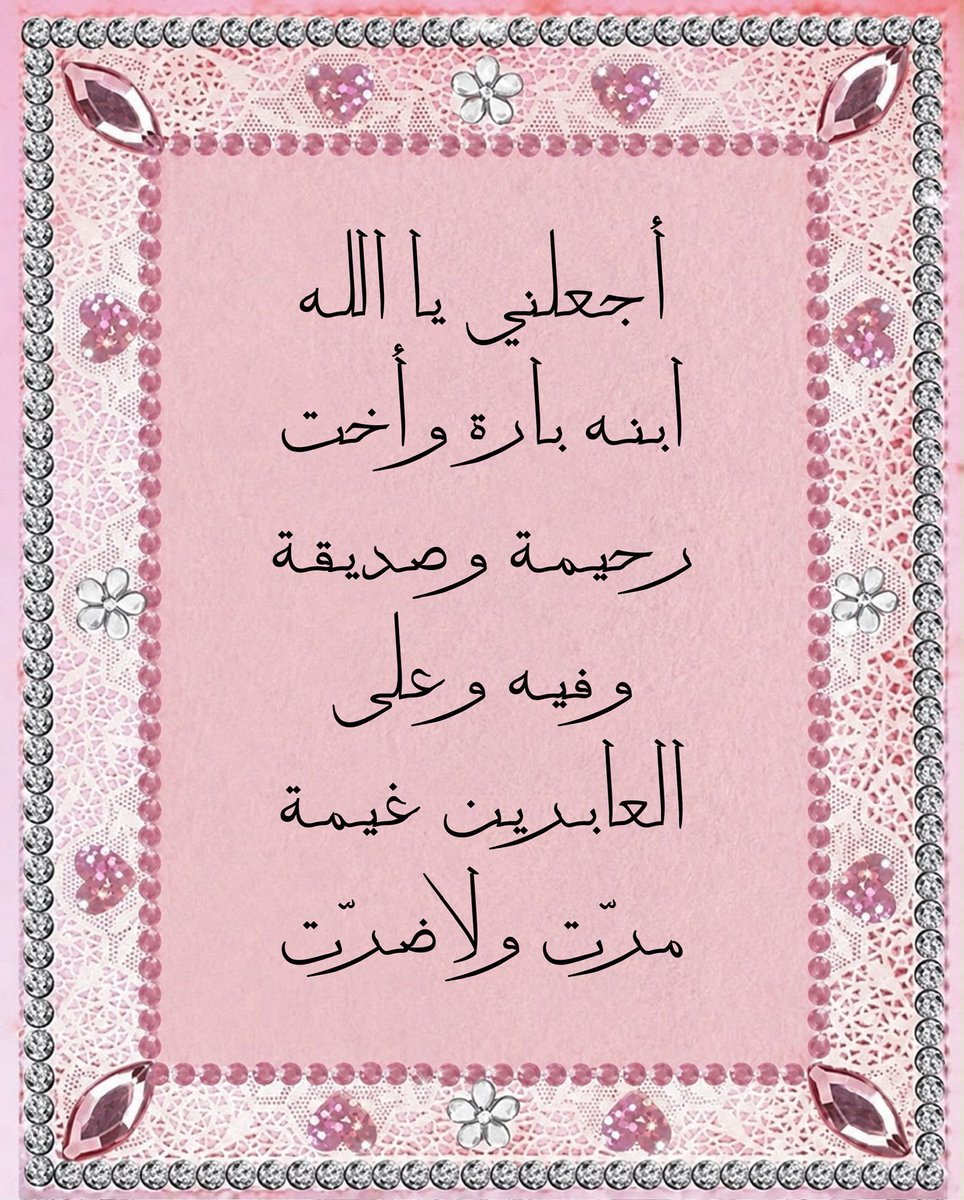 أجعلني يا الله
ابنه بارة وأخت
رحيمة وصديقة
وفيه وعلى
العابرين غيمة
مرّت ولاضرّت